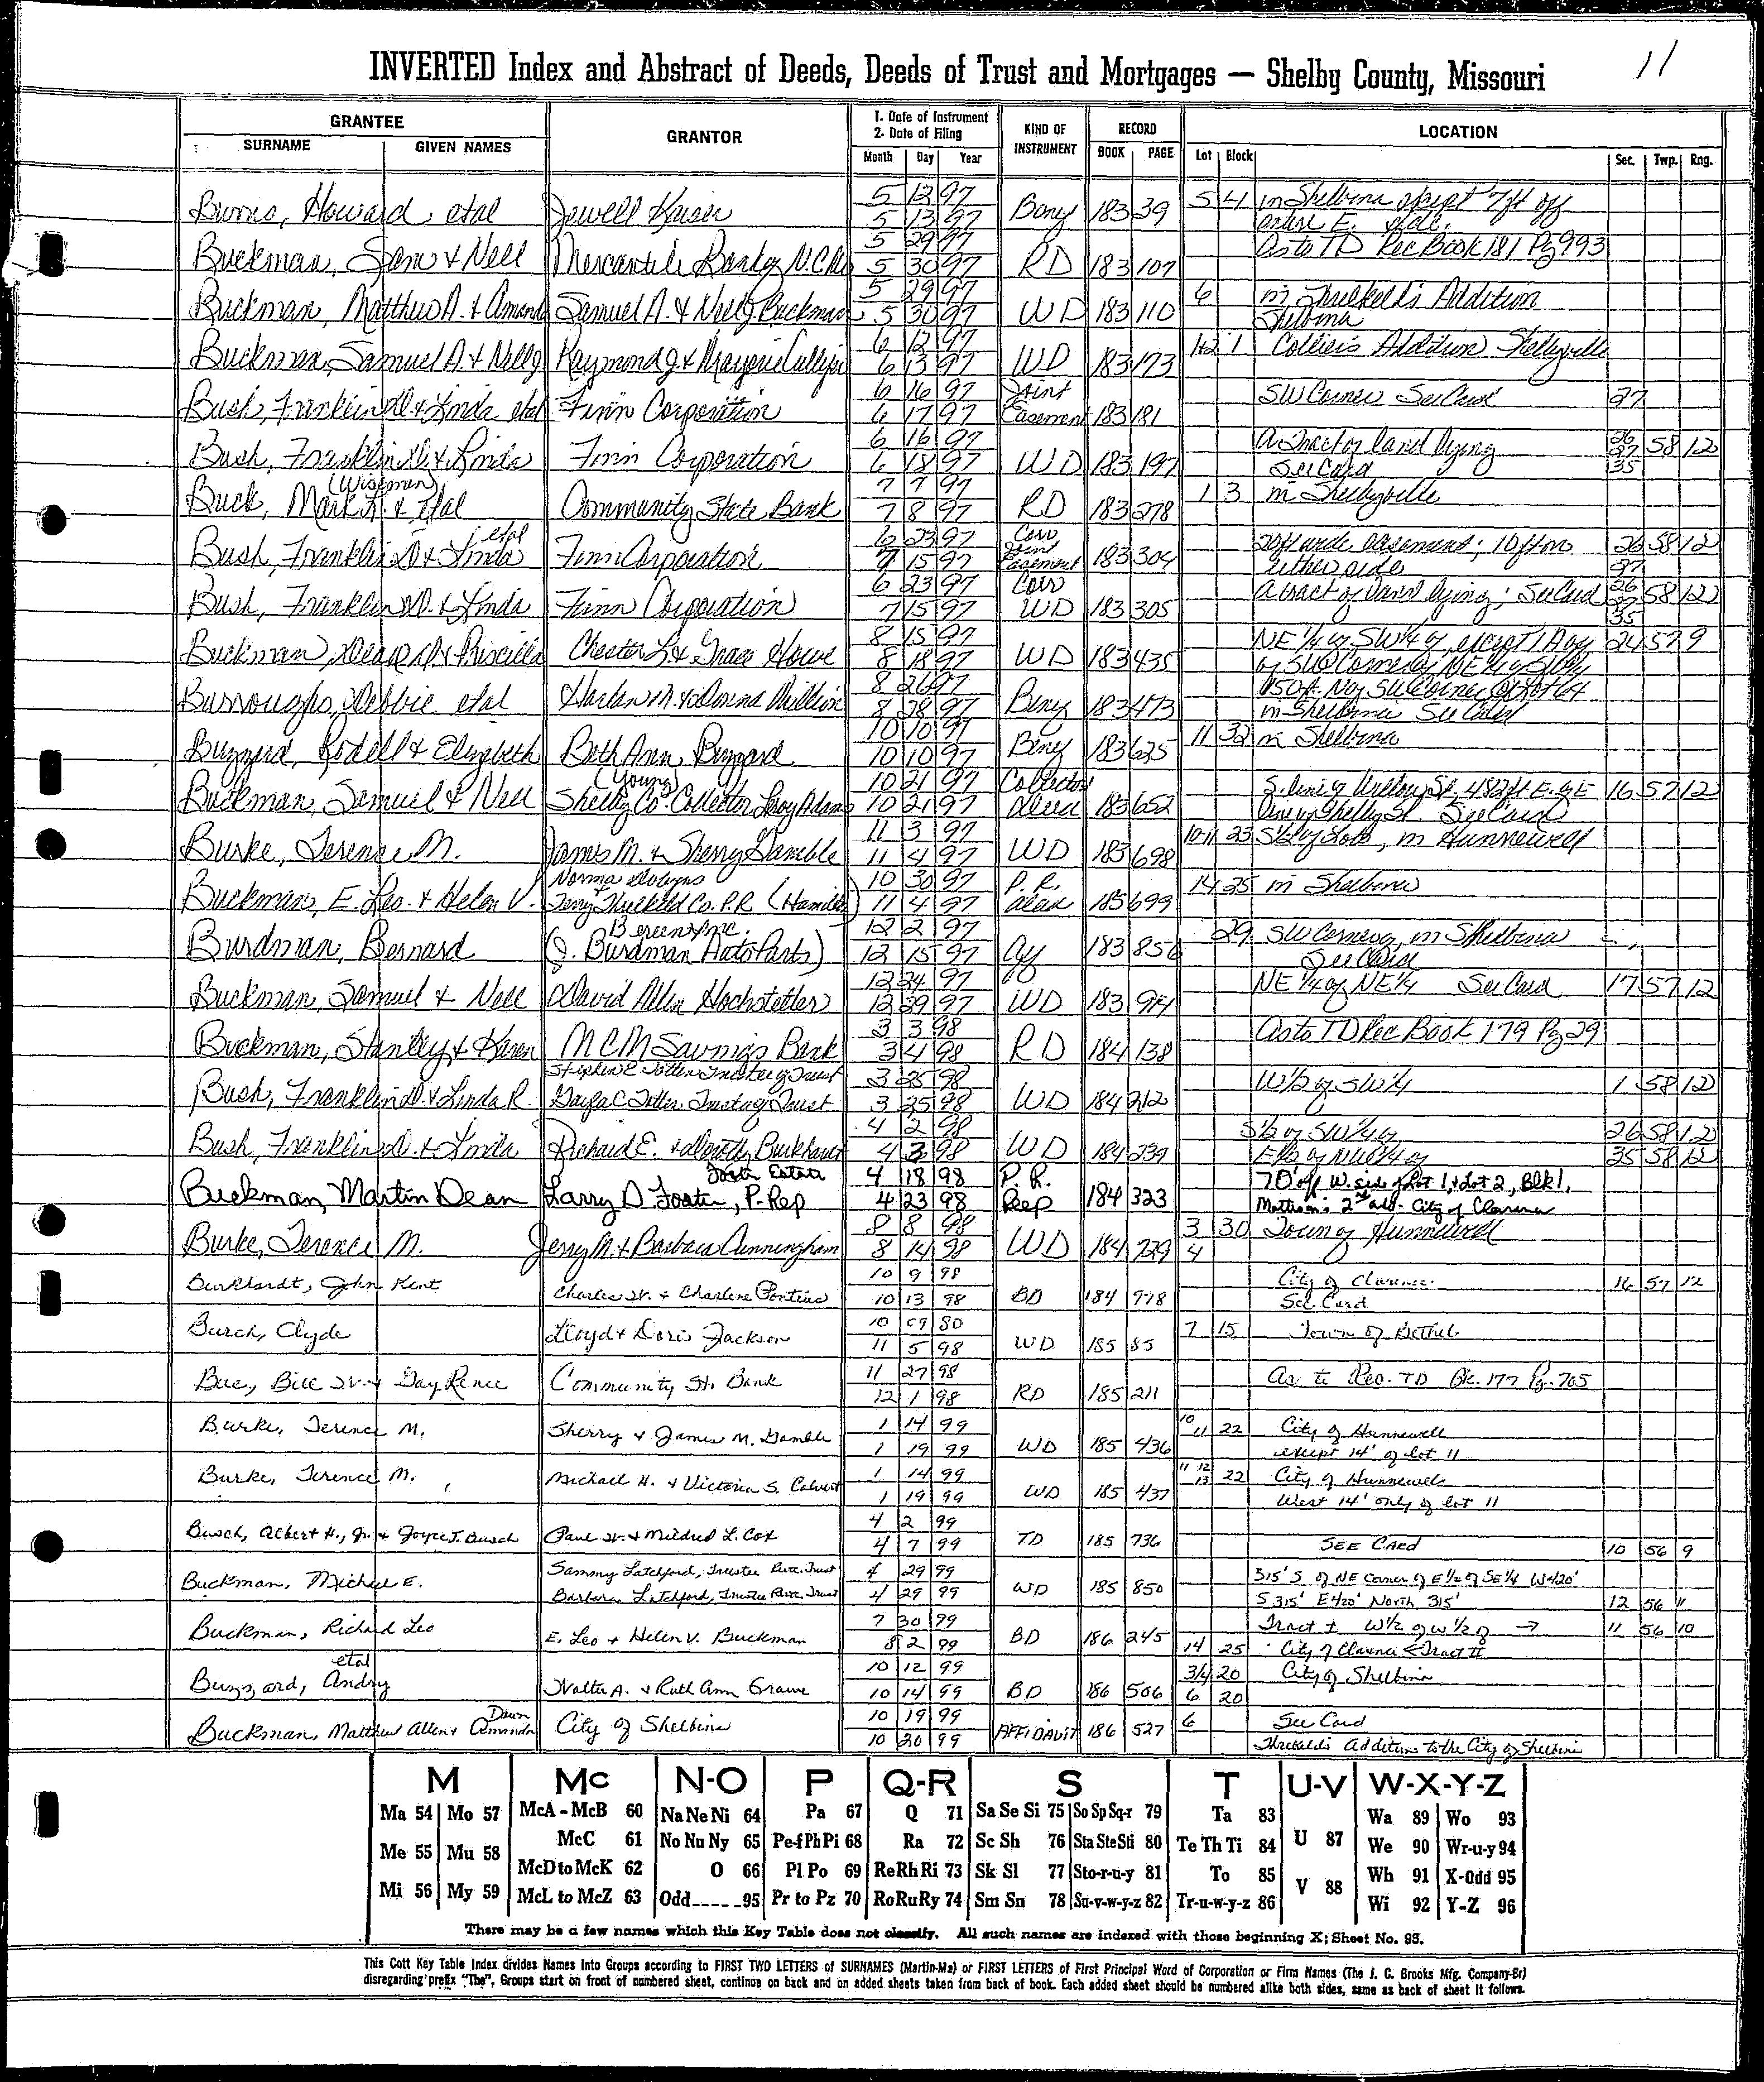 11
INVERTED Index and Abstract of Deeds, Deeds of Trust and Mortgages — Shelby County, Missouri
GRANTEE GRANTOR 1. Date of Instrument 2. Date of Filing KIND OF INSTRUMENT RECORD LOCATION
SURNAME GIVEN NAMES Month Day Year BOOK PAGE Lot Block Sec. Twp. Rng.
Burns, Howard etal Jewell Kaiser 5 12 97 Beny 183 39 5 4 in Shelbina except 7ft off
5 13 97 entire E.
Buckman, Sam & Nell Mercantile Bank of N.C. Mo 5 29 97 RD 183 107 As to TD Rec Book 181 Pg 993
5 30 97
Buckman, Matthew A. & Amand Samuel A. & Nell J. Buckman 5 29 97 WD 183 110 6 in Threlkeld's Addition
5 30 97 Shelbina
Buckman, Samuel A. & Nell J Raymond J. & Marjorie 6 12 97 WD 183 173 1+2 1 Collier's Addition Shelbyville
6 13 97
Bush, Franklin D. & Linda etal Finn Corporation 6 16 97 Joint Easement 183 181 SW Corner See Card 27
6 17 97
Bush, Franklin D. & Linda Finn Corporation 6 16 97 WD 183 197 A Tract of land lying 26 27 35 58 12
6 18 97 See Card
Buck, Mark & etal (Wiseman) Community State Bank 7 7 97 RD 183 278 1 3 in Shelbyville
7 8 97
Bush, Franklin D & Linda etal Finn Corporation 6 23 97 Corr Joint Easement 183 304 20ft wide easement; 10ft on 26 58 12
7 15 97 either side 27
Bush, Franklin D. & Linda Finn Corporation 6 23 97 Corr WD 183 305 A tract of land lying; See Card 26 27 35 58 12
7 15 97
Buckman, Dean & Priscilla Chester L. & Grace Howe 8 15 97 WD 183 435 NE 1/4 of SW 1/4 of, except 1 A 24 57 9
8 18 97 of SW Corner of NE 1/4 of SW 1/4
Burroughs, Debbie etal Harlan M. & Donna Million 8 26 97 Beny 183 473 150ft N of SW Corner of Lot 64
8 28 97 in Shelbina See Card
Buzzard, Rodell & Elizabeth Beth Ann Buzzard (Young) 10 10 97 Beny 183 625 11 32 in Shelbina
10 10 97
Buckman, Samuel & Nell Shelby Co. Collector Leroy Adams 10 21 97 Collectors Deed 183 652 S. line of 482 ft E. of E 16 57 12
10 21 97 line of Shelby St. See Card
Burke, Terence M. James M. & Sherry Gamble 11 3 97 WD 183 698 10-11 23 S 1/2 of lots, in Hunnewell
11 4 97
Buckman, E. Leo. & Helen V. Norma 10 30 97 P.R. Deed 185 699 14 25 in Shelbina
Terry Threlkeld Co. P.R (Hamilton) 11 4 97
Burdman, Bernard (J. Burdman Auto Parts) 12 2 97 183 856 29 SW Corner of, in Shelbina
12 15 97 See Card
Buckman, Samuel & Nell David Allen Hochstetler 12 24 97 WD 183 914 NE 1/4 of NE 1/4 See Card 17 57 12
12 29 97
Buckman, Stanley & Karen MCM Savings Bank 3 3 98 RD 184 138 As to TD Rec Book 179 Pg 29
3 4 98
Stephen E Totten Trustee of Trust
Bush, Franklin D. & Linda R. Gayla C Totten Trustee of Trust 3 25 98 WD 184 212 W 1/2 of SW 1/4 1 58 12
3 25 98
Bush, Franklin D. & Linda Richard E. & Dorothy Burkhardt 4 2 98 WD 184 239 S 1/2 of SW 1/4 of 26 58 12
4 3 98 E 1/2 of NW 1/4 of 35 58 12
Foster Estate
Buckman, Martin Dean Larry D. Foster, P. Rep 4 18 98 P.R. 184 323 70' off W. side of Lot 1, & Lot 2, Blk 1,
4 23 98 Deep 2nd add. City of Clarence
Burke, Terence M. Jerry M. & Barbara Cunningham 8 8 98 WD 184 729 3 30 Town of Hunnewell
8 14 98 4
Burkhardt, John Kent Charles W. & Charlene Pontius 10 9 98 BD 184 978 City of Clarence 16 57 12
10 13 98 See Card
Burch, Clyde Lloyd & Doris Jackson 10 09 80 WD 185 85 7 15 Town of Bethel
11 5 98
Bue, Bill W. & Gay Renee Community St. Bank 11 27 98 RD 185 211 As to Rec. TD Bk. 177 Pg. 705
12 1 98
Burke, Terence M. Sherry & James M. Gamble 1 14 99 WD 185 436 10 11 22 City of Hunnewell
1 19 99 except 14' of lot 11
Burke, Terence M. Michael H. & Victoria S. Calvert 1 14 99 WD 185 437 11 12 13 22 City of Hunnewell
1 19 99 West 14' only of lot 11
Busch, Albert H., Jr. & Joyce T. Busch Paul W. & Mildred L. Cox 4 2 99 TD 185 736 SEE CARD 10 56 9
4 7 99
Buckman, Michael E. Sammy Latchford, Trustee Revc. Trust 4 29 99 WD 185 850 315' S of NE Corner of E 1/2 of SE 1/4 W 420'
Barbara Latchford, Trustee Revc. Trust 4 29 99 S 315' E 420' North 315' 12 56 11
Buckman, Richard Leo E. Leo & Helen V. Buckman 7 30 99 BD 186 245 Tract I W 1/2 of W 1/2 of → 11 56 10
8 2 99 14 25 City of Clarence ← Tract II
Buzzard, Andry etal Walter A. & Ruth Ann Grawe 10 12 99 BD 186 506 3/4 20 City of Shelbina
10 14 99 6 20
Buckman, Matthew Allen & Amanda Dawn City of Shelbina 10 19 99 AFFIDAVIT 186 527 6 See Card
10 20 99 Threlkeld's Addition to the City of Shelbina
M Mc N-O P Q-R S T U-V W-X-Y-Z
Ma 54 Mo 57 McA - McB 60 Na Ne Ni 64 Pa 67 Q 71 Sa Se Si 75 So Sp Sq-r 79 Ta 83 U 87 Wa 89 Wo 93
Me 55 Mu 58 McC 61 No Nu Ny 65 Pe-f Ph Pi 68 Ra 72 Sc Sh 76 Sta Ste Sti 80 Te Th Ti 84 We 90 Wr-u-y 94
McD to McK 62 O 66 Pl Po 69 Re Rh Ri 73 Sk Sl 77 Sto-r-u-y 81 To 85 V 88 Wh 91 X-Odd 95
Mi 56 My 59 McL to McZ 63 Odd 95 Pr to Pz 70 Ro Ru Ry 74 Sm Sn 78 Su-v-w-y-z 82 Tr-u-w-y-z 86 Wi 92 Y-Z 96
There may be a few names which this Key Table does not classify. All such names are indexed with those beginning X; Sheet No. 95.
This Cott Key Table Index divides Names Into Groups according to FIRST TWO LETTERS of SURNAMES (Martin-Ma) or FIRST LETTERS of First Principal Word of Corporation or Firm Names (The J. C. Brooks Mfg. Company-Br)
disregarding prefix "The". Groups start on front of numbered sheet, continue on back and on added sheets taken from back of book. Each added sheet should be numbered alike both sides, same as back of sheet it follows.